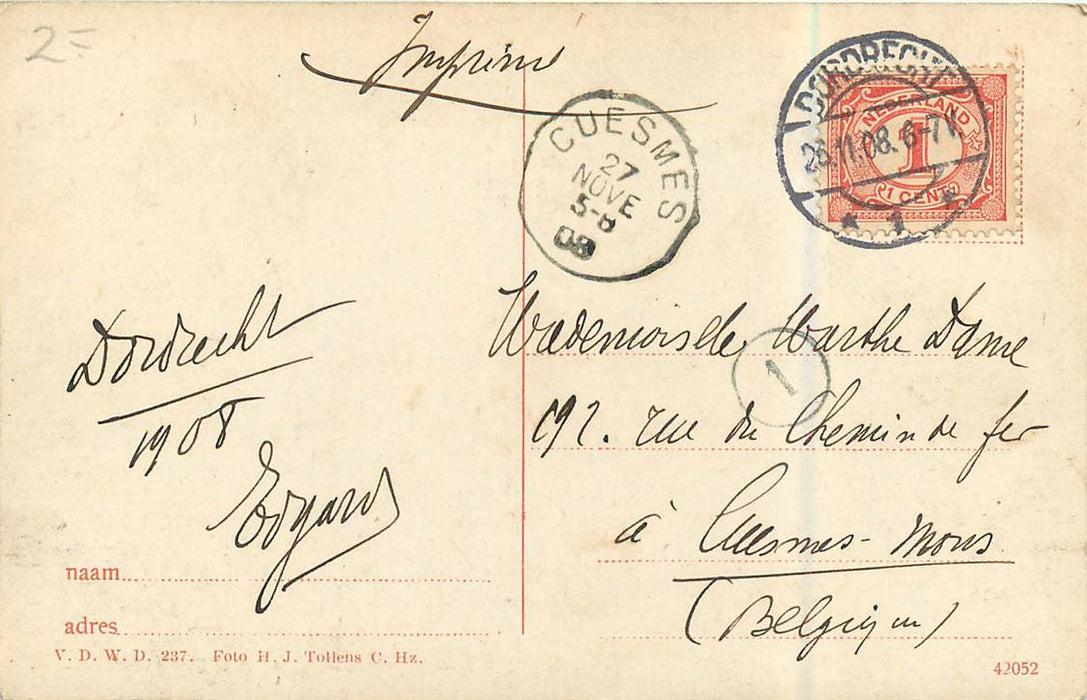 2=
Imprimé
CUESMES
27
NOVE
5-6
08
DORDRECHT
26.11.08. 6-7V.
* 1 *
NEDERLAND
1
1 CENT
Dordrecht
1908
Edgard
Mademoiselle Marthe Dame
1
192. rue du Chemin de fer
à Cuesmes-Mons
(Belgique)
naam
adres
V. D. W. D. 237. Foto H. J. Tollens C. Hz.
42052